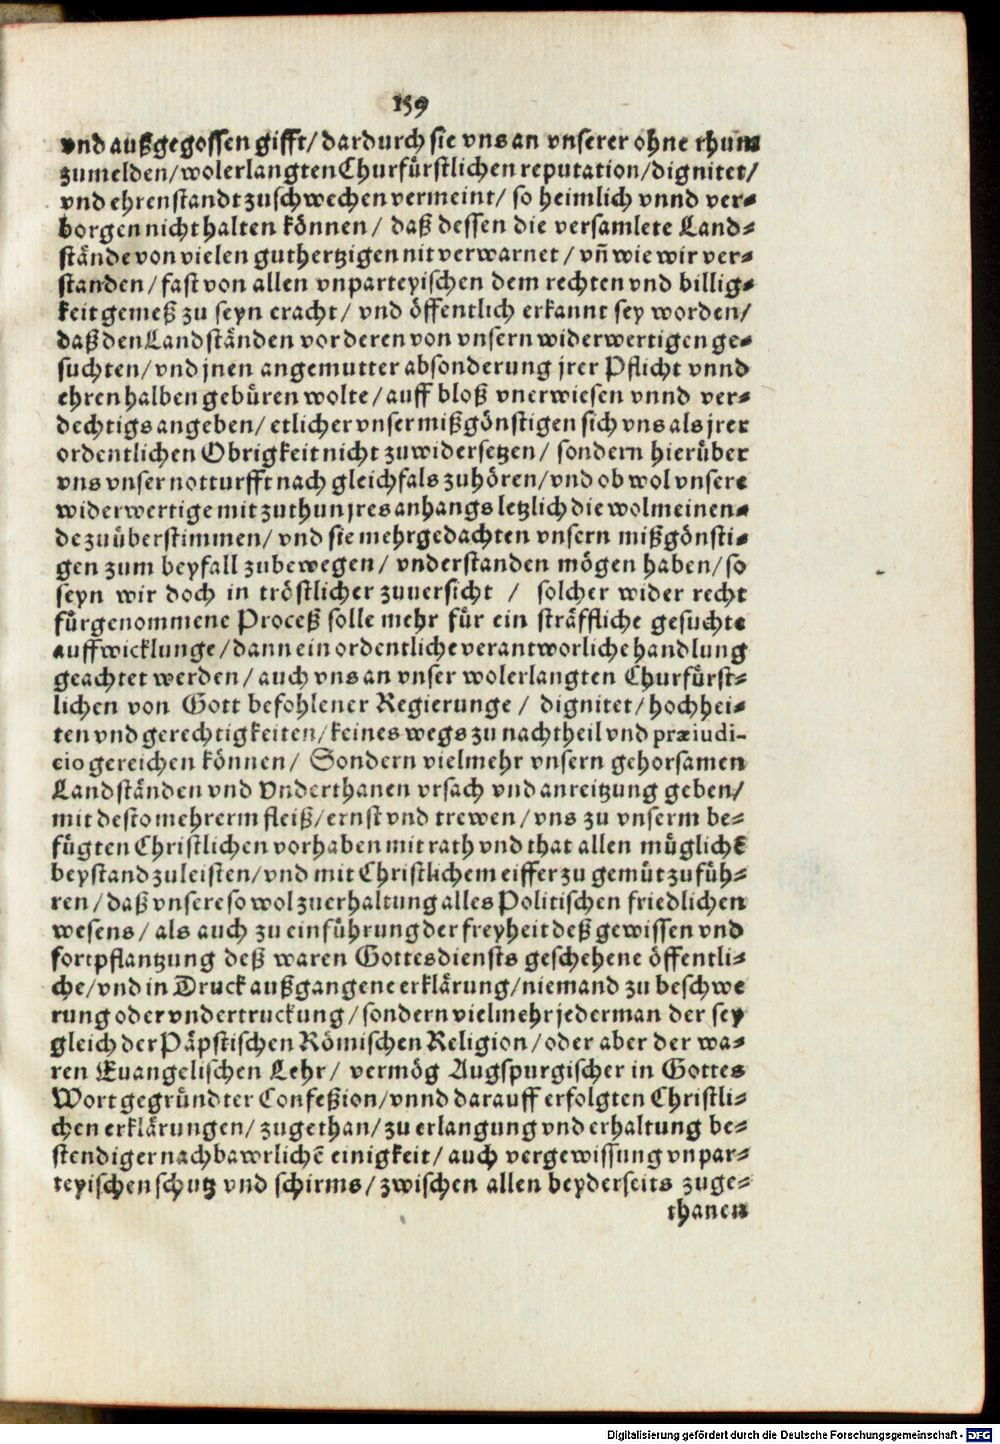 159
vnd außgegossen gifft/ dardurch sie vns an vnserer ohne rhum
zumelden/ wolerlangten Churfürstlichen reputation/ dignitet/
vnd ehrenstandt zuschwechen vermeint/ so heimlich vnnd ver-
borgen nicht halten können/ daß dessen die versamlete Land-
stände von vielen guthertzigen nit verwarnet/ vñ wie wir ver-
standen/ fast von allen vnparteyischen dem rechten vnd billig-
keit gemeß zu seyn eracht/ vnd öffentlich erkannt sey worden/
daß den Landständen vor deren von vnsern widerwertigen ge-
suchten/ vnd jnen angemutter absonderung jrer Pflicht vnnd
ehren halben gebüren wolte/ auff bloß vnerwiesen vnnd ver-
dechtigs angeben/ etlicher vnser mißgönstigen sich vns als jrer
ordentlichen Obrigkeit nicht zuwidersetzen/ sondern hierüber
vns vnser notturfft nach gleichfals zuhören/ vnd ob wol vnsere
widerwertige mit zuthun jres anhangs letzlich die wolmeinen-
de zuüberstimmen/ vnd sie mehrgedachten vnsern mißgönsti-
gen zum beyfall zubewegen/ vnderstanden mögen haben/ so
seyn wir doch in tröstlicher zuuersicht / solcher wider recht
fürgenommene Proceß solle mehr für ein sträffliche gesuchte
auffwicklunge/ dann ein ordentliche verantworliche handlung
geachtet werden/ auch vns an vnser wolerlangten Churfürst-
lichen von Gott befohlener Regierunge/ dignitet/ hochhei-
ten vnd gerechtigkeiten/ keines wegs zu nachtheil vnd præiudi-
cio gereichen können/ Sondern vielmehr vnsern gehorsamen
Landständen vnd Vnderthanen vrsach vnd anreitzung geben/
mit desto mehrerm fleiß/ ernst vnd trewen/ vns zu vnserm be-
fügten Christlichen vorhaben mit rath vnd that allen müglichẽ
beystand zuleisten/ vnd mit Christlichem eiffer zu gemüt zufüh-
ren/ daß vnsere so wol zu erhaltung alles Politischen friedlichen
wesens/ als auch zu einführung der freyheit deß gewissen vnd
fortpflantzung deß waren Gottesdiensts geschehene öffentli-
che/ vnd in Druck außgangene erklärung/ niemand zu beschwe
rung oder vndertruckung/ sondern vielmehr jederman der sey
gleich der Päpstischen Römischen Religion/ oder aber der wa-
ren Euangelischen Lehr/ vermög Augspurgischer in Gottes
Wort gegründter Confeßion/ vnnd darauff erfolgten Christli-
chen erklärungen/ zugethan/ zu erlangung vnd erhaltung be-
stendiger nachbawrlichẽ einigkeit/ auch vergewissung vnpar-
teyischen schutz vnd schirms/ zwischen allen beyderseits zuge-
thanen
Digitalisierung gefördert durch die Deutsche Forschungsgemeinschaft - DFG